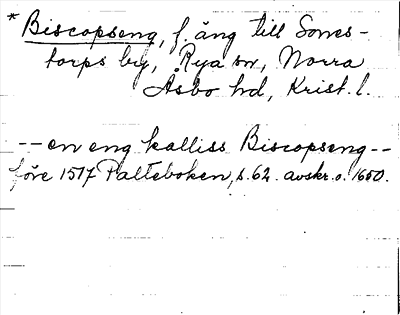 * Biscopseng, f. äng till Sones-
torps by, Rya sn, Norra
Åsbo hd, Krist. l.
-- en eng kalliss Biscopseng --
före 1517 Palteboken, s. 62. avskr. o. 1600.